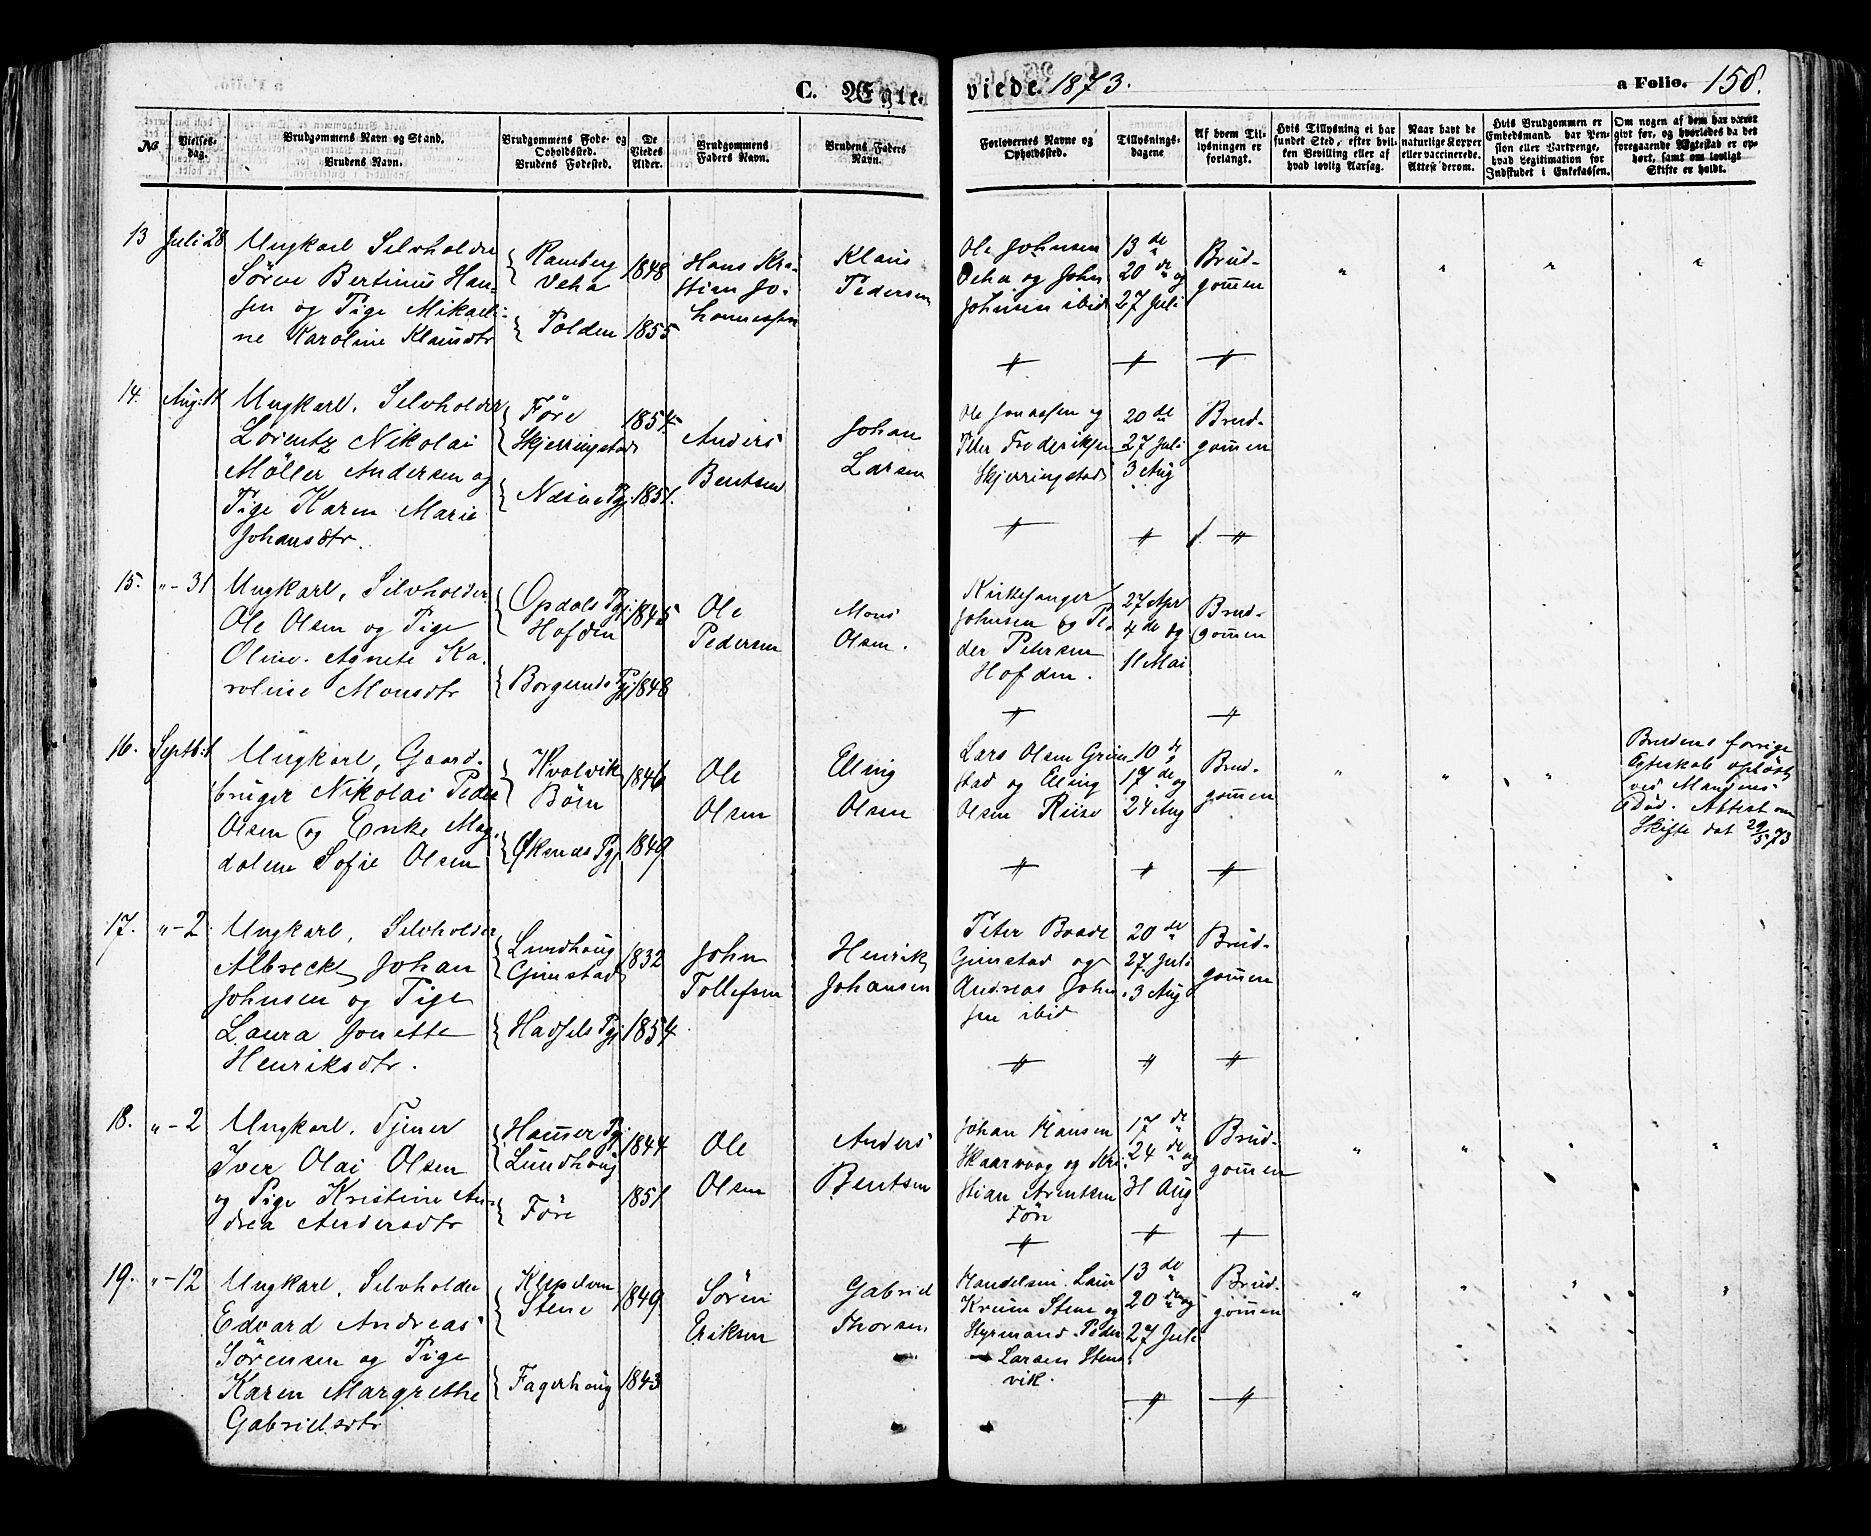 C. Ægte-
viede. 1873.
a Folio. 158.
No
Vielses-
dag.
Brudgommens Navn og Stand.
Brudens Navn.
Brudgommens Føde- og
Opholdssted.
Brudens Fødested.
De
Viedes
Alder.
Brudgommens
Faders Navn.
Brudens Faders
Navn.
Forlovernes Navne og
Opholdssted.
Tillysnings-
dagene
Af hvem Til-
lysningen er
forlangt.
Hvis Tillysning ei har
fundet Sted, efter hvil-
ken Bevilling eller af
hvad lovlig Aarsag.
Naar havt de
naturlige Kopper
eller vaccinerede.
Attest derom.
Hvis Brudgommen er
Embedsmand, har Pen-
sion eller Vartpenge,
hvad Legitimation for
Indskudet i Enkekassen.
Om nogen af dem har været
gift før, og hvorledes da det
foregaaende Ægteskab er op-
hørt, samt om lovligt
Skifte er holdt.
13 Juli 28
Ungkarl Selvholder
Sören Bertinus Han-
sen og Tige Mikaeli-
ne Karoline Klausdtr
Ramberg
Veha
Tolden
1848
1855
Hans Kri-
stian Jo-
hannessen
Klaus
Pedersen
Ole Johnsen
Veha og John
Johnsen ibid
13de
20de og
27 Juli
Brud-
gommen
14. Aug: 11
Ungkarl, Selvholder
Lorentz Nikolai
Möller Andersen og
Tige Karen Marie
Johansdtr.
Före
Skjerringstad
Næsne Pgj.
1854
1851.
Anders
Bentsen
Johan
Larsen
Ole Jonassen og
Peter Frederiksen
Skjerringstad
20de
27 Juli
3 Aug
Brud-
gommen
15. "-31
Ungkarl, Selvholder
Ole Olsen og Tige
Oline Agnete Ka-
roline Monsdtr
Opdals Pgj.
Hofden
Borgunds Pgj.
1845
1848
Ole
Pedersen
Mons
Olsen.
Kirkesanger
Johnsen og Pe
der Petersen
Hofden.
27 Apr
4de og
11 Mai
Brud-
gommen
16. Septb: 1
Ungkarl, Gaard-
bruger Nikolai Peder
Olsen og Enke Mag-
dalene Sofie Olsen
Kvalvik
Böen
Øksnes Pgj
1846
1849
Ole
Olsen
Elling
Olsen
Lars Olsen Grim
stad og Eling
Olsen Riise
10de
17de og
24 Aug
Brud-
gommen
Brudens forrige
Egteskab oplöst
ved Mandens
Död. Attest om
Skifte dat 29/5 73
17. "-2
Ungkarl, Selvholder
Albreckt Johan
Johnsen og Tige
Laura Jonette
Henriksdtr.
Lundhoug
Gimstad
Hadsels Pgj.
1832
1854
John
Tollefsen
Henrik
Johansen
Peter Baade
Gimstad og
Andreas John
sen ibid
20de
27 Juli
3 Aug
Brud-
gommen
18. "-2
Ungkarl, Tjener
Iver Olai Olsen
og Pige Kristine An-
drea Andersdtr
Hammer Pgj.
Lundhoug
Före
1844
1851
Ole
Olsen
Anders
Bentsen
Johan Hansen
Skaarvaag og Kri
stian Arentsen
Före
17de
24de og
31 Aug
Brud-
gommen
19. "-12
Ungkarl, Selvholder
Edvard Andreas
Sörensen og Tige
Karen Margrethe
Gabrielsdtr
Stene
Fagerhoug
1849
1843
Sören
Eriksen
Gabriel
Thorsen
Handelsm. Laur
Krum Stene og
Styrmand Peder
Larsen Stens
vik.
13de
20de og
27 Juli
Brud-
gommen